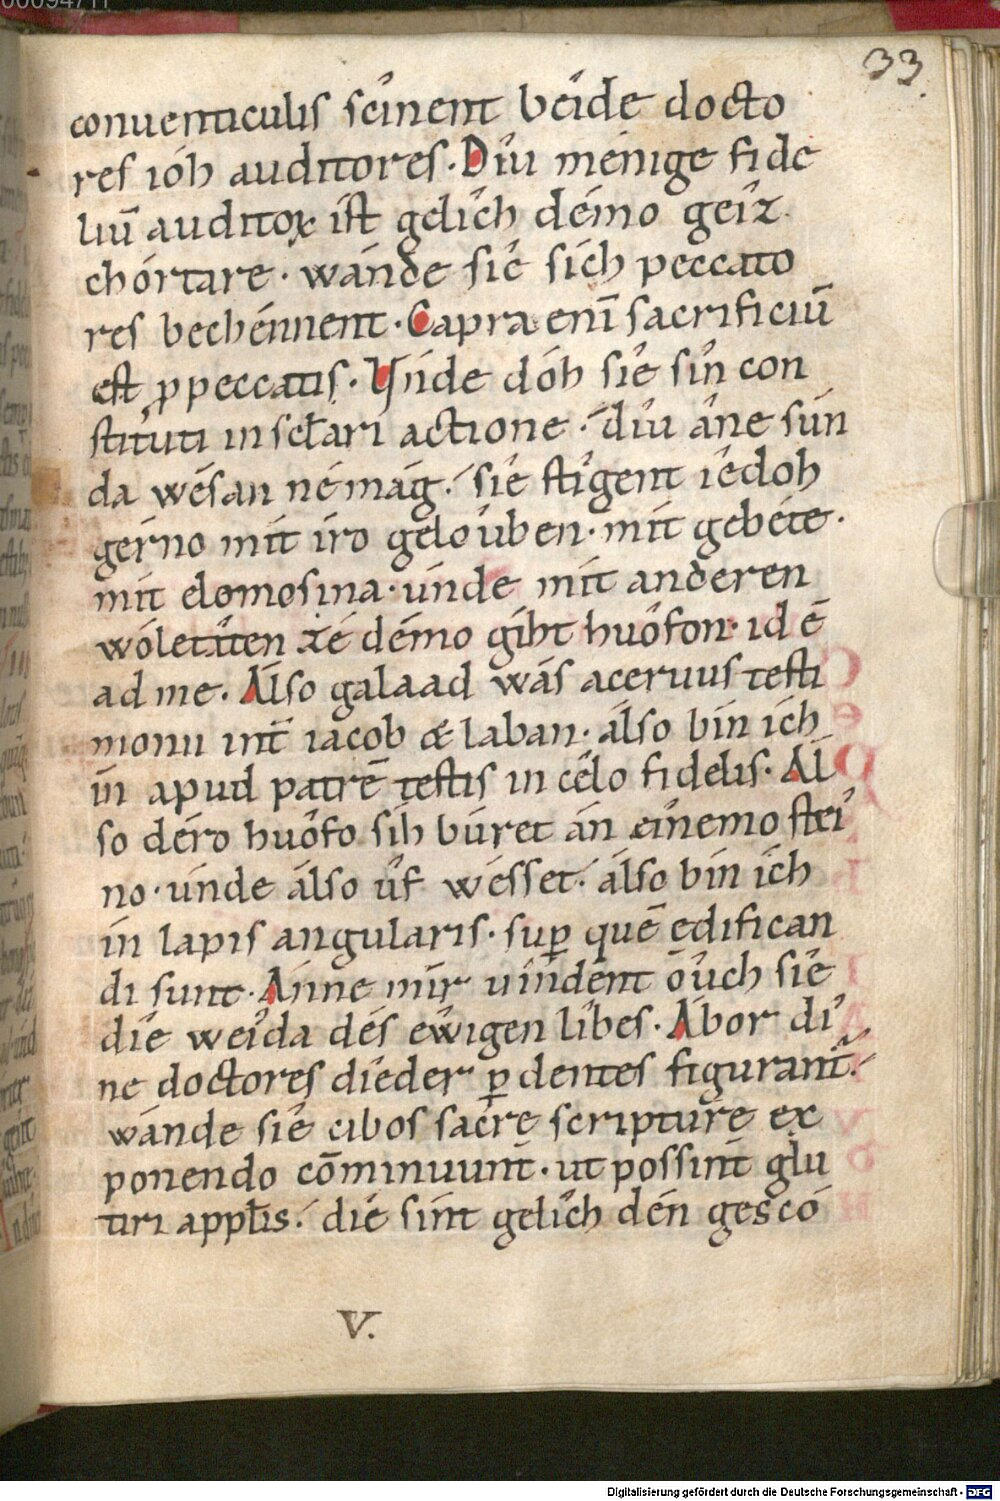 33.
conuenticulis seínent béide docto
res ióh auditores. Díu ménige fide
liū auditoꝝ ist gelích démo geiz
chórtare. wánde síe sích peccato
res bechénnent. Capra enī sacrificiū
est ꝓ peccatis. Vnde dóh síe sín con
stituti in sc̄lari actione. díu áne sún
da wésan nemág. síe stígent iedoh
gérno mít íro geloúben. mít gebéte.
mít elomosina. únde mít ánderen
wóletáten ze démo gíbt huófon. id ē
ad me. Álso galaad wás aceruus testi
monii int̄ iacob & laban. álso bín ích
ín apud patrē testis in cęlo fidelis. Ál
so déro huófo síh búret án eínemo steí
no. únde álso úf wésset. álso bín ích
ín lapis angularis. suꝑ quē edifican
di sunt. Ánne mír uíndent óuch síe
díe weída dés éwigen líbes. Ábor dí
ne doctores díeder ꝑ dentes figurant̄.
wánde síe cibos sacre scripturę ex
ponendo cōminuunt. ut possint glu
tiri appt̄is. díe sínt gelích dén gescó
V.
Digitalisierung gefördert durch die Deutsche Forschungsgemeinschaft - DFG